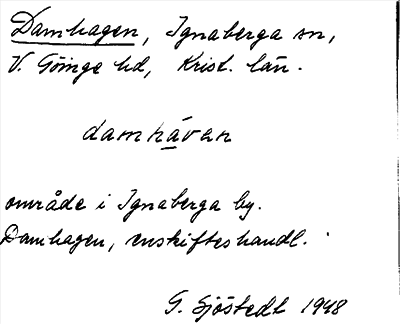 Damhagen, Ignaberga sn,
V. Göinge hd, Krist. län.
damhāven
område i Ignaberga by.
Damhagen, enskifteshandl.
G. Sjöstedt 1948